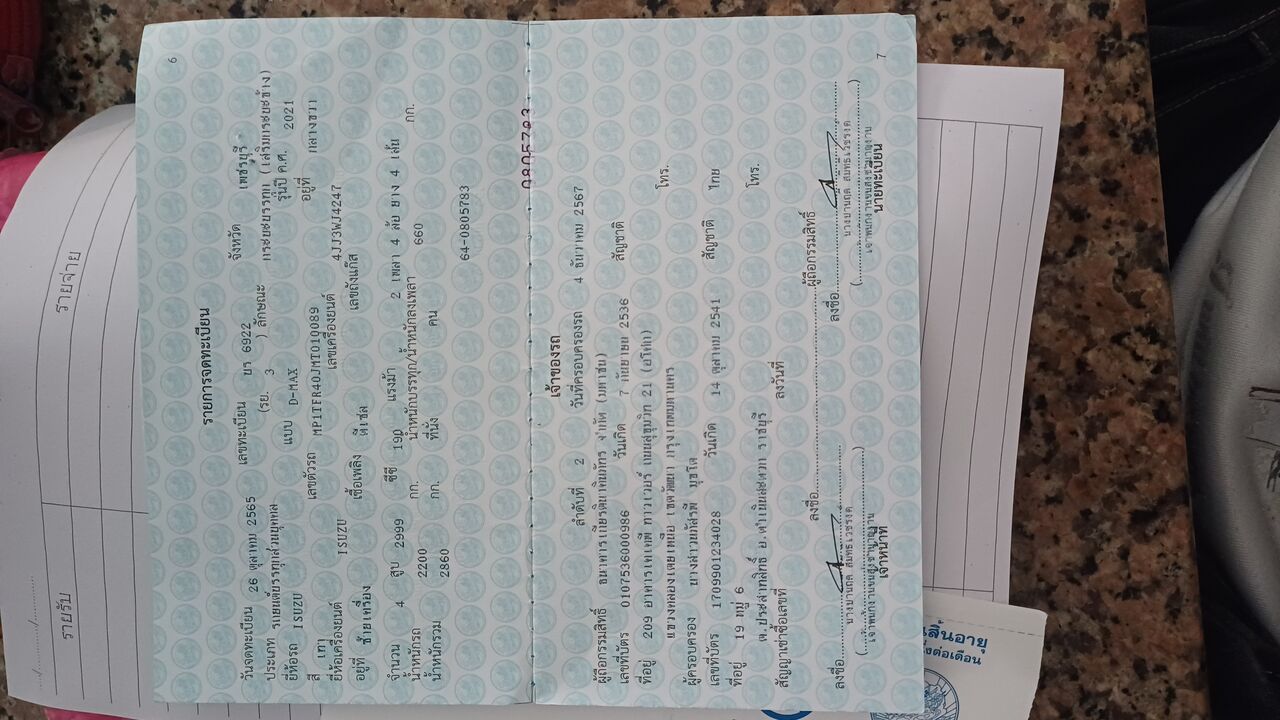 6
รายการจดทะเบียน
วันจดทะเบียน 26 ตุลาคม 2565 เลขทะเบียน ยร 6922 จังหวัด เพชรบุรี
ประเภท รถยนต์บรรทุกส่วนบุคคล (รย. 3 ) ลักษณะ กระบะบรรทุก (เสริมกระบะข้าง)
ยี่ห้อรถ ISUZU แบบ D-MAX รุ่นปี ค.ศ. 2021
สี เทา เลขตัวรถ MP1TFR40JMT010089 อยู่ที่ กลางขวา
ยี่ห้อเครื่องยนต์ ISUZU เลขเครื่องยนต์ 4JJ3WJ4247
อยู่ที่ ซ้ายเครื่อง เชื้อเพลิง ดีเซล เลขถังแก๊ส
จำนวน 4 สูบ 2999 ซีซี 190 แรงม้า 2 เพลา 4 ล้อ ยาง 4 เส้น
น้ำหนักรถ 2200 กก. น้ำหนักบรรทุก/น้ำหนักลงเพลา 660 กก.
น้ำหนักรวม 2860 กก. ที่นั่ง คน
64-0805783
เจ้าของรถ
ลำดับที่ 2 วันที่ครอบครองรถ 4 ธันวาคม 2567
ผู้ถือกรรมสิทธิ์ ธนาคารเกียรตินาคินภัทร จำกัด (มหาชน)
เลขที่บัตร 0107536000986 วันเกิด 7 กันยายน 2536 สัญชาติ
ที่อยู่ 209 อาคารเคเคพี ทาวเวอร์ ถนนสุขุมวิท 21 (อโศก)
แขวงคลองเตยเหนือ เขตวัฒนา กรุงเทพมหานคร โทร.
ผู้ครอบครอง
เลขที่บัตร 1709901234028 วันเกิด 14 ตุลาคม 2541 สัญชาติ ไทย
ที่อยู่ 19 หมู่ 6
ต.ประสาทสิทธิ์ อ.ดำเนินสะดวก ราชบุรี โทร.
สัญญาเช่าซื้อเลขที่ ลงวันที่
ลงชื่อ ผู้ถือกรรมสิทธิ์
ลงชื่อ ลงชื่อ
เจ้าหน้าที่ นายทะเบียน
7
รายรับ รายจ่าย
สิ้นอายุ